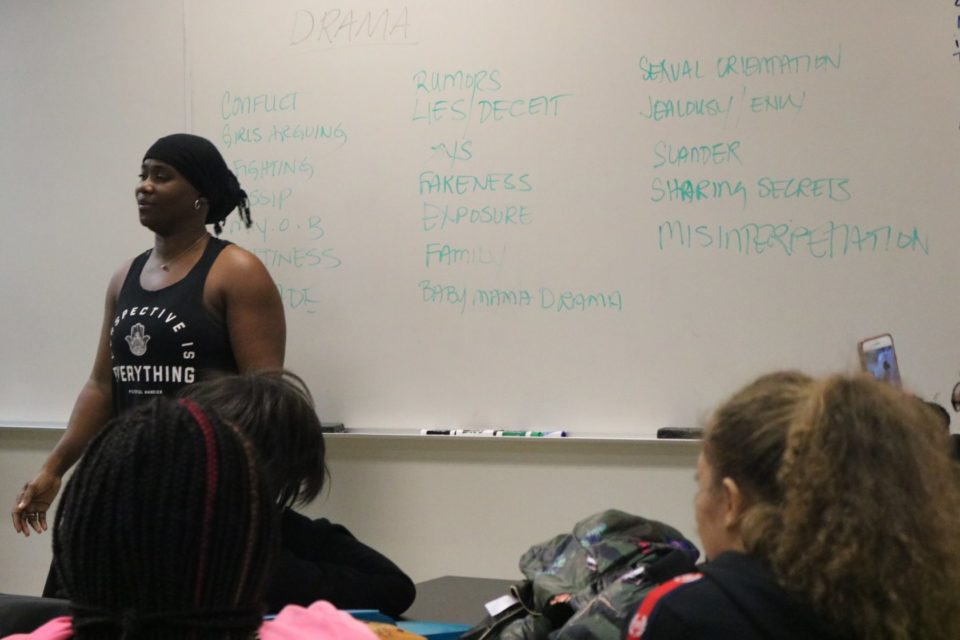 DRAMA
CONFLICT
GIRLS ARGUING
FIGHTING
M.Y.O.B
RUMORS
LIES/DECEIT
FAKENESS
EXPOSURE
FAMILY
BABY MAMA DRAMA
SEXUAL ORIENTATION
JEALOUSY/ENVY
SLANDER
SHARING SECRETS
MISINTERPETATION
PERSPECTIVE IS
EVERYTHING